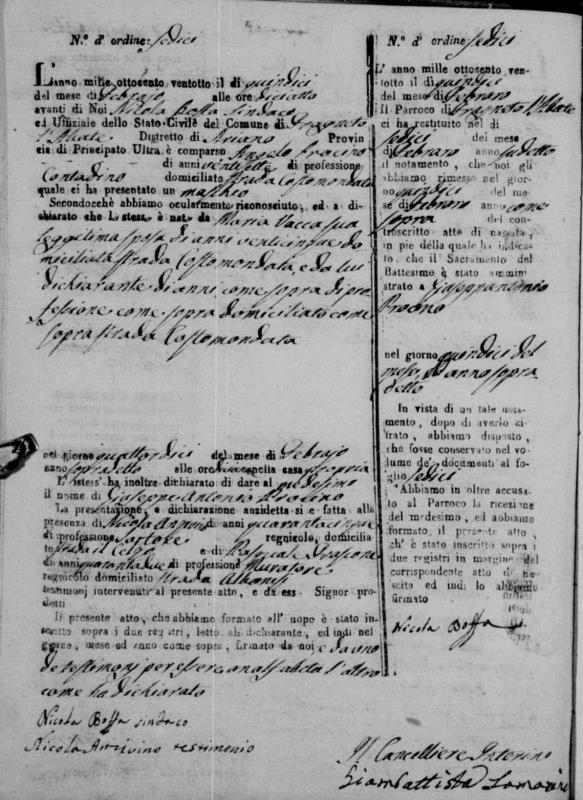 N.º d' ordine: sedici
L'anno mille ottocento ventotto il dì quindici
del mese di Febrajo alle ore diciotto
avanti di Noi Nicola Boffa Sindaco
ed Uffiziale dello Stato Civile del Comune di Fragneto
l'Abate Distretto di Ariano Provin
cia di Principato Ultra, è comparso Angelo
di anni ventisette di professione
Contadino domiciliato strada Costomondata
quale ci ha presentato un maschio
Secondocchè abbiamo ocularmente riconosciuto, ed a di-
chiarato che lo stess è nat da Maria Vacca sua
legittima sposa di anni venticinque do
miciliata strada Costomondata, e da lui
dichiarante di anni come sopra di pro
fessione come sopra domiciliato come
sopra strada Costomondata
nel giorno quattordici del mese di Febrajo
anno sopradetto alle ore nella casa propria
L'istess' ha inoltre dichiarato di dare al medesimo
il nome di Giuseppe Antonio
La presentazione, e dichiarazione anzidetta si e fatta alla
presenza di Nicola di anni quaranta cinque
di professione Sartore regnicolo, domicilia-
to strada il Celzo e di Pascale
di anni quarantadue di professione Muratore
regnicolo domiciliato strada
testimonj intervenuti al presente atto, e da ess Signor pro-
dotti
Il presente atto, che abbiamo formato all' uopo è stato in-
scritto sopra i due registri, letto al dichiarante, ed indi nel
giorno, mese ed anno come sopra, firmato da noi e da uno
de testimonj per essere analfabeta l'altro
come ha dichiarato
Nicola Boffa sindaco
Nicola testimonio
N.º d' ordine sedici
L' anno mille ottocento ven-
totto il dì quindici
del mese di Febraro
Il Parroco di Fragneto l'Abate
ci ha restituito nel dì
sedici del mese
di Febraro anno sudetto
il notamento, che noi gli
abbiamo rimesso nel gior-
no quindici del me-
se di Febraro anno come
sopra del con-
troscritto atto di nascita,
in piè della quale ha indica-
to, che il Sacramento del
Battesimo è stato ammini
strato a Giuseppantonio
nel giorno quindici del
mese, ed anno sopra
detto
In vista di un tale nota-
mento, dopo di averlo ci-
frato, abbiamo disposto,
che fosse conservato nel vo-
lume de' documenti al fo-
glio sedici
Abbiamo in oltre accusa-
to al Parroco la ricezione
del medesimo, ed abbiamo
formato, il presente atto,
ch' è stato inscritto sopra i
due registri in margine del
corrispondente atto di na-
scita ed indi lo abbiamo
firmato
Nicola Boffa
Il Cancelliere Interino
Giambattista